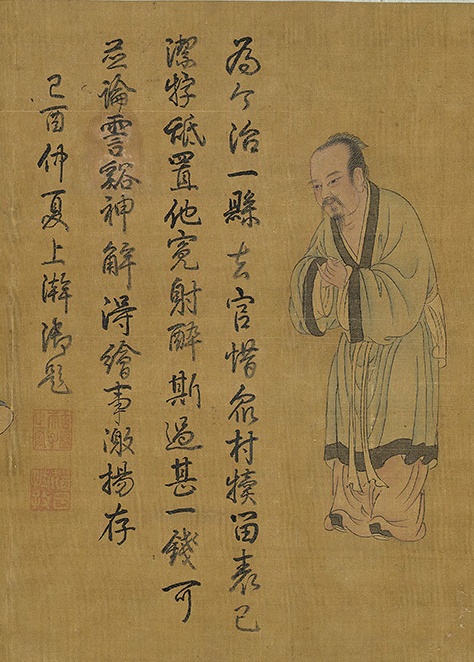 為令治一縣去官惜眾村犢留表已
潔牸舐置他寃射醉斯過甚一錢可
並論雲谿神解得繪事激揚存
己酉仲夏上澣御題